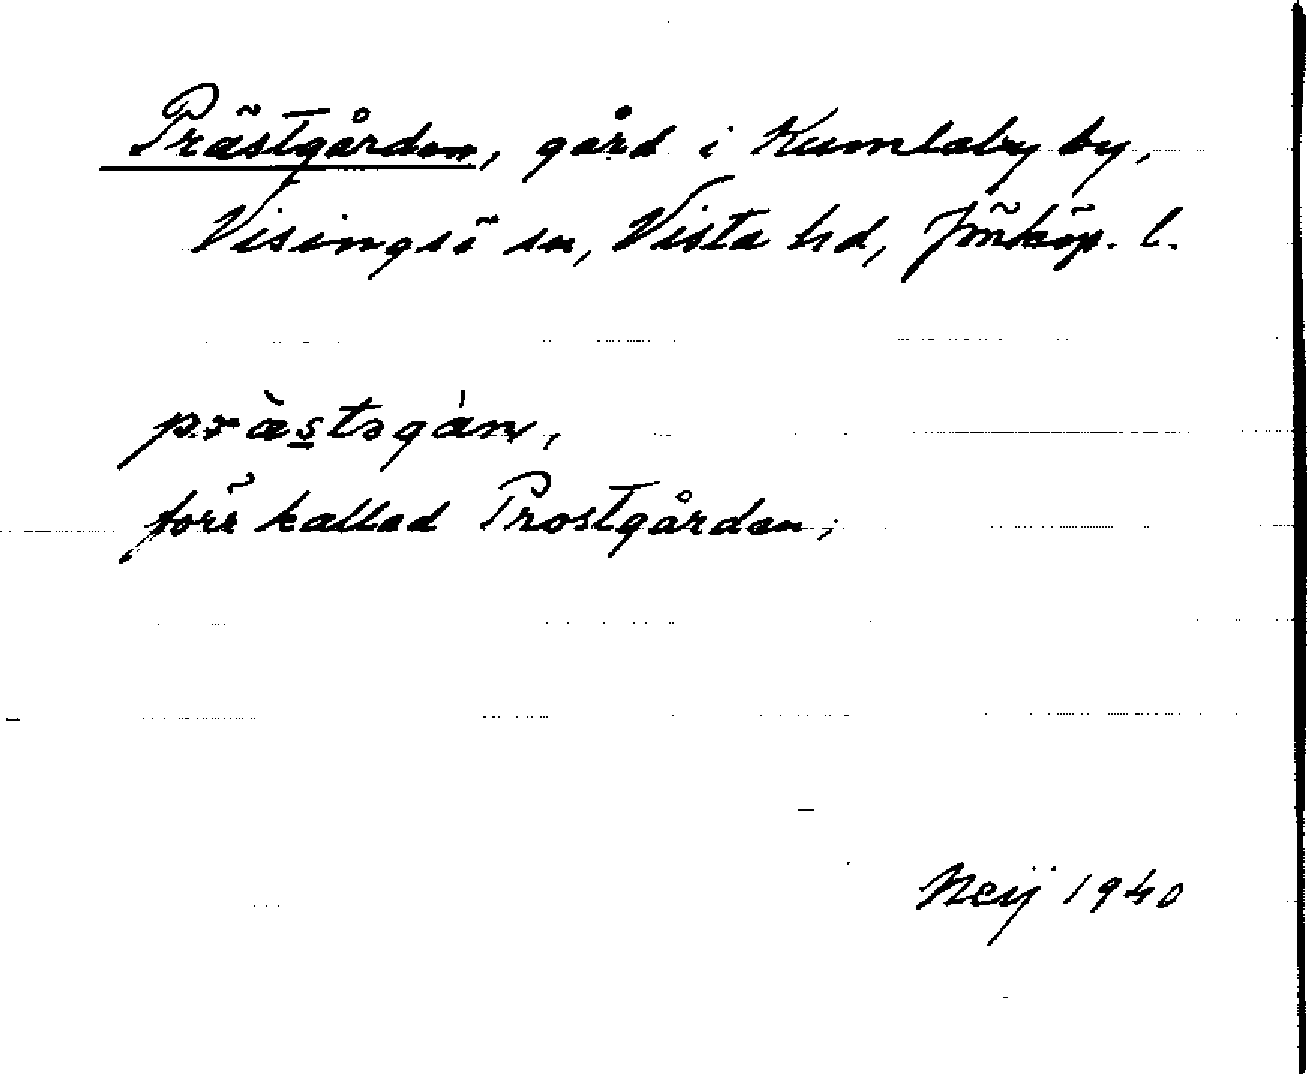 Prästgården, gård i Kumlaby by,
Visingsö sn, Vista hd, Jönköp. l.
prästsgán,
förr kallad Prostgården;
Neij 1940